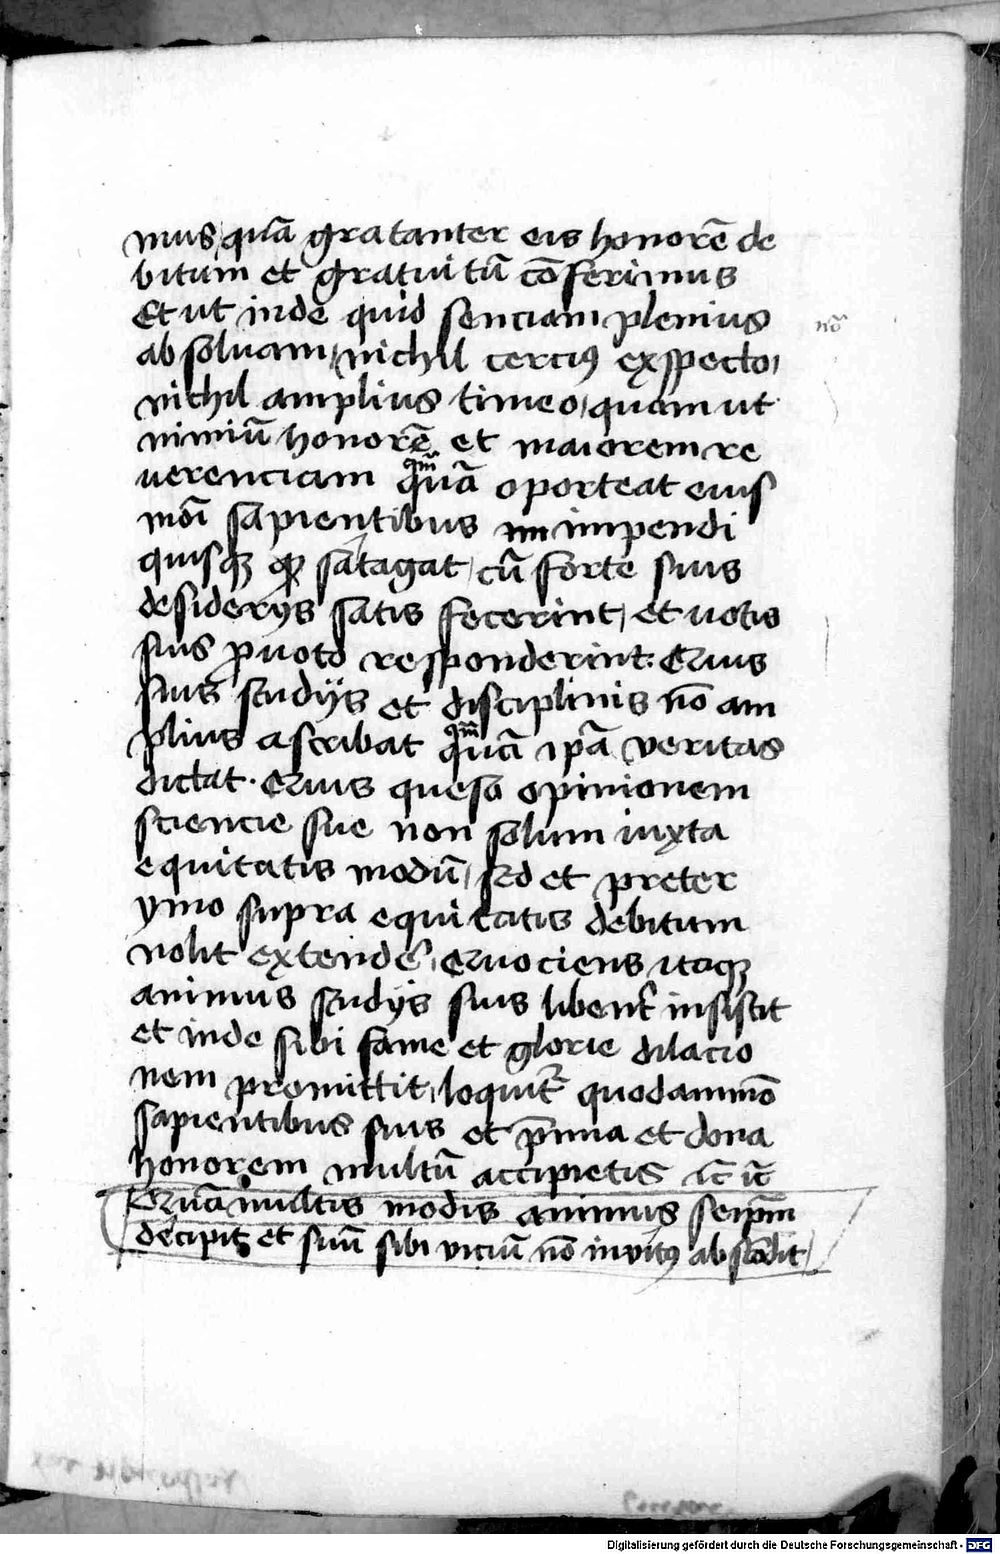 mus quā gratanter eis honorē de
bitum et gratuitū cōferimus
Et ut inde quid senciam plenius
absoluam nichil cercius exspecto
nichil amplius timeo quam ut
nimiū honorē et maiorem re
uerenciam quā oporteat eius
mōi sapientibus impendi
quisq satagat cū forte suis
desiderijs satis fecerint et uotis
suis p uoto responderint. Eruus
suis studijs et disciplinis nō am
plius ascribat quā ipā veritas
dictat. Eruus queso opinionem
sciencie sue non solum iuxta
equitatis modū sed et preter
ymo supra equitatis debitum
nolit extende itaq
animus studijs suis libent insistit
et inde sibi fame et glorie dilacio
nem promittit loquit quodammō
sapientibus suis et p̄mia et dona
honorem multū accipietis
multis modis animus seip̄m
decipit et suū sibi viciū nō invitꝰ abscōdit
nō
Digitalisierung gefördert durch die Deutsche Forschungsgemeinschaft - DFG